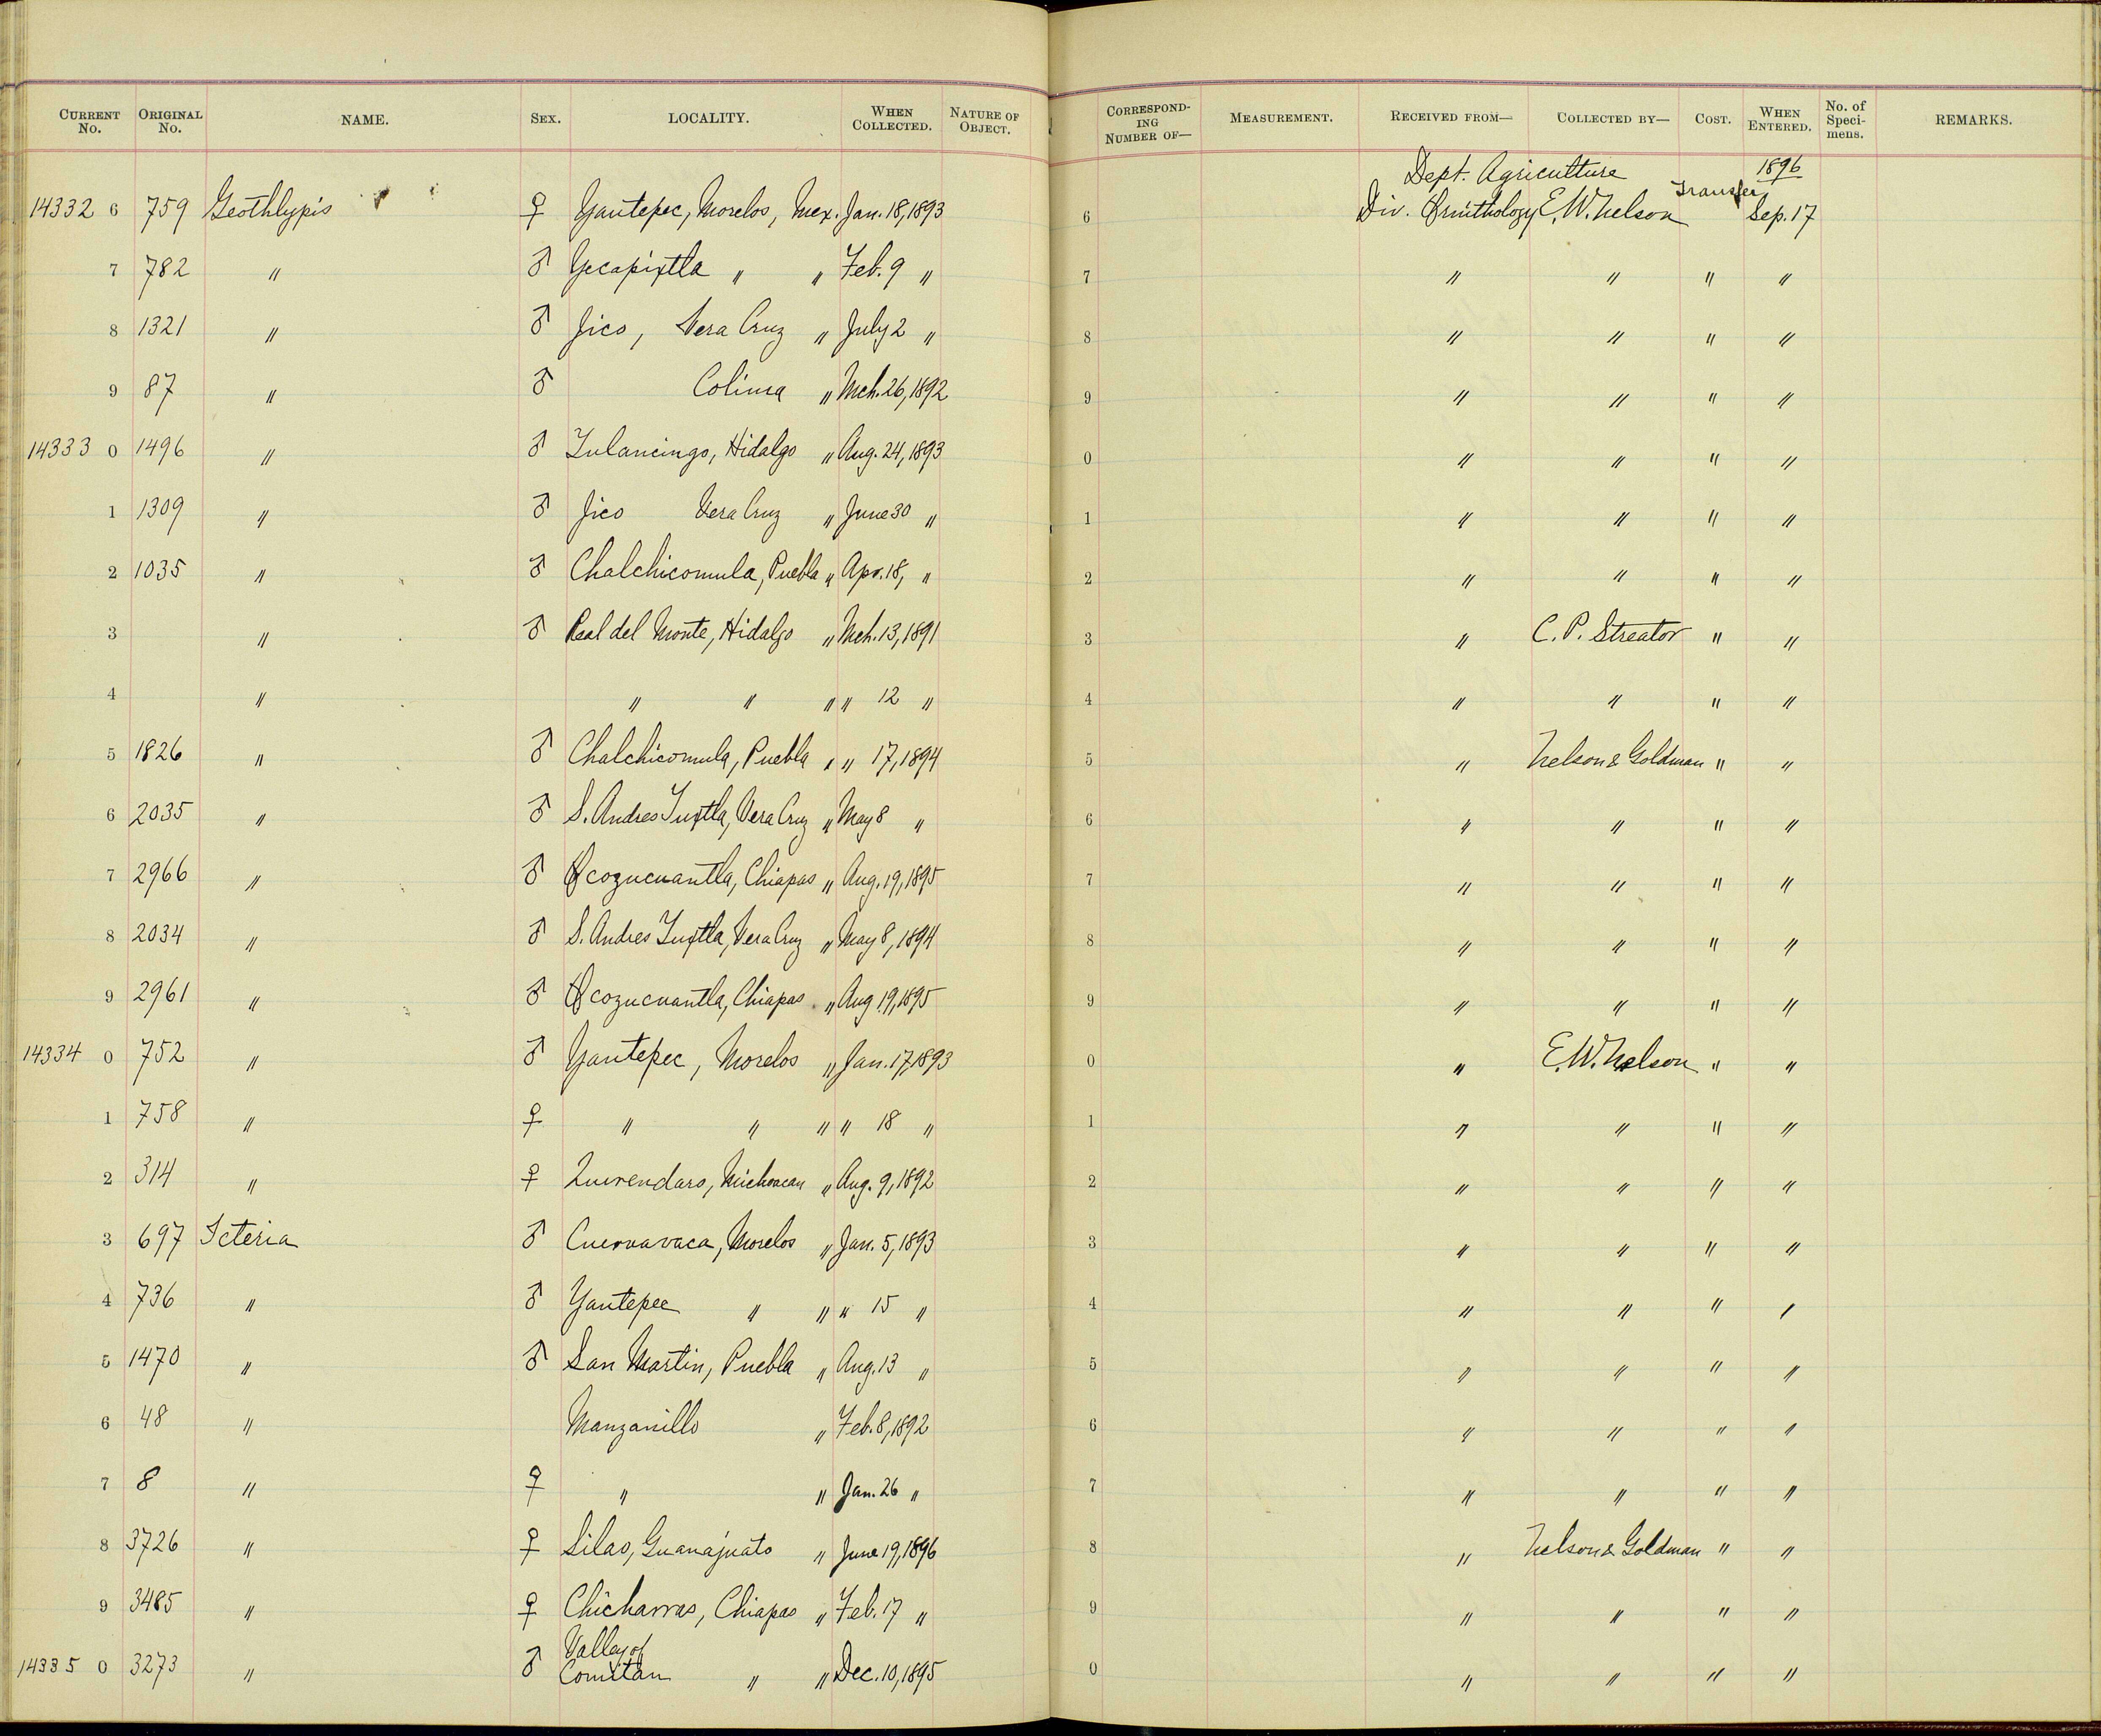 CURRENT No. ORIGINAL No. NAME. SEX. LOCALITY. WHEN COLLECTED. NATURE OF OBJECT. CORRESPONDING NUMBER OF— MEASUREMENT. RECEIVED FROM— COLLECTED BY— COST. WHEN ENTERED. No. of Specimens. REMARKS.
Dept. Agriculture 1896
14332 6 759 Geothlypis ♀ Yautepec, Morelos, Mex. Jan. 18, 1893 6 Div. Ornithology E. W. Nelson Transfer Sep. 17
7 782 " ♂ Yecapixtla " " Feb. 9 " 7 " " " "
8 1321 " ♂ Jico, Vera Cruz " July 2 " 8 " " " "
9 87 " ♂ Colima " Mch. 26, 1892 9 " " " "
14333 0 1496 " ♂ Tulancingo, Hidalgo " Aug. 24, 1893 0 " " " "
1 1309 " ♂ Jico Vera Cruz " June 30 " 1 " " " "
2 1035 " ♂ Chalchicomula, Puebla " Apr. 18, " 2 " " " "
3 " ♂ Real del Monte, Hidalgo " Mch. 13, 1891 3 " C. P. Streator " "
4 " " " " " 12 " 4 " " " "
5 1826 " ♂ Chalchicomula, Puebla " " 17, 1894 5 " Nelson & Goldman " "
6 2035 " ♂ S. Andres Tuxtla, Vera Cruz " May 8 " 6 " " " "
7 2966 " ♂ Ocozucuautla, Chiapas " Aug. 19, 1895 7 " " " "
8 2034 " ♂ S. Andres Tuxtla, Vera Cruz " May 8, 1894 8 " " " "
9 2961 " ♂ Ocozucuautla, Chiapas " Aug 19, 1895 9 " " " "
14334 0 752 " ♂ Yautepec, Morelos " Jan. 17, 1893 0 " E. W. Nelson " "
1 758 " ♀ " " " " 18 " 1 " " " "
2 314 " ♀ Querendaro, Michoacan " Aug. 9, 1892 2 " " " "
3 697 Icteria ♂ Cuernavaca, Morelos " Jan. 5, 1893 3 " " " "
4 736 " ♂ Yautepec " " " 15 " 4 " " " "
5 1470 " ♂ San Martin, Puebla " Aug. 13 " 5 " " " "
6 48 " Manzanillo " Feb. 8, 1892 6 " " " "
7 8 " ♀ " " Jan. 26 " 7 " " " "
8 3726 " ♀ Silao, Guanajuato " June 19, 1896 8 " Nelson & Goldman " "
9 3485 " ♀ Chicharras, Chiapas " Feb. 17 " 9 " " " "
14335 0 3273 " ♂ Valley of Comitan " " Dec. 10, 1895 0 " " " "